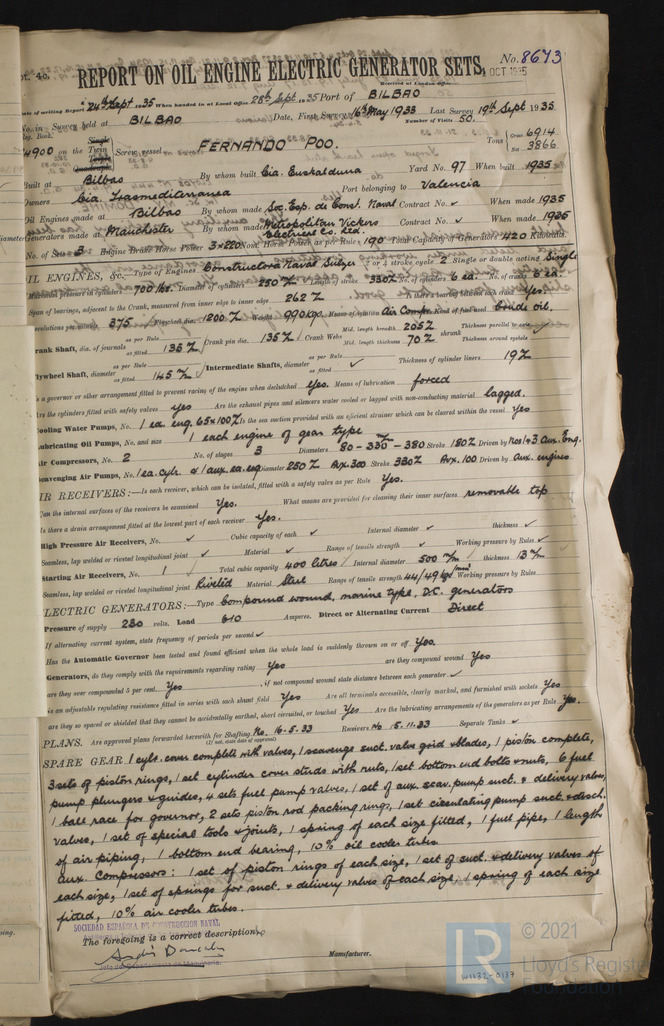 pt. 4c. REPORT ON OIL ENGINE ELECTRIC GENERATOR SETS. No. 8673
Received at London Office OCT 1935
Date of writing Report 24th Sept 1935 When handed in at Local Office 28th Sept 1935 Port of BILBAO
No. in Survey held at BILBAO Date, First Survey 16th May 1933 Last Survey 19th Sept 1935
Reg. Book. Number of Visits 50.
4900 on the Single Twin Triple Quadruple Screw vessel FERNANDO POO. Tons Gross 6914 Net 3866.
Built at Bilbao By whom built Cia. Euskalduna Yard No. 97 When built 1935
Owners Cia. Trasmediterranea Port belonging to Valencia
Oil Engines made at Bilbao By whom made Soc. Esp. de Const. Naval Contract No. ✓ When made 1935
Generators made at Manchester By whom made Metropolitan Vickers Electrical Co. Ltd. Contract No. ✓ When made 1935
No. of Sets 3 Engine Brake Horse Power 3×220 Nom. Horse Power as per Rule 190 Total Capacity of Generators 420 Kilowatts.
OIL ENGINES, &c.—Type of Engines Constructora Naval Sulzer 2 or 4 stroke cycle 2 Single or double acting Single
Maximum pressure in cylinders 700 lbs. Diameter of cylinders 250 % Length of stroke 330 % No. of cylinders 6 ea. No. of cranks 6 ea.
Span of bearings, adjacent to the Crank, measured from inner edge to inner edge 262 % Is there a bearing between each crank Yes.
Revolutions per minute 375 Flywheel dia. 1200 % Weight 990 kgs. Means of ignition Air Compr. Kind of fuel used Crude oil.
Crank Shaft, dia. of journals as per Rule as fitted 135 % Crank pin dia. 135 % Crank Webs Mid. length breadth 205 % Mid. length thickness 70 % shrunk Thickness parallel to axis ✓ Thickness around eyehole
Flywheel Shaft, diameter as per Rule as fitted 145 % Intermediate Shafts, diameter as per Rule as fitted ✓ Thickness of cylinder liners 19 %
Is a governor or other arrangement fitted to prevent racing of the engine when declutched Yes. Means of lubrication forced
Are the cylinders fitted with safety valves yes Are the exhaust pipes and silencers water cooled or lagged with non-conducting material lagged.
Cooling Water Pumps, No. 1 ea. eng. 65×100 % Is the sea suction provided with an efficient strainer which can be cleared within the vessel yes
Lubricating Oil Pumps, No. and size 1 each engine of gear type
Air Compressors, No. 2 No. of stages 3 Diameters 80 – 330 – 380 Stroke 180 % Driven by Nos 1 & 3 Aux. Eng.
Scavenging Air Pumps, No. 1 ea. cyl. & 1 aux. ea. eng Diameter 250 % Aux. 300 Stroke 330 % Aux. 100 Driven by Aux. engines
AIR RECEIVERS:—Is each receiver, which can be isolated, fitted with a safety valve as per Rule Yes.
Can the internal surfaces of the receivers be examined Yes. What means are provided for cleaning their inner surfaces removable top
Is there a drain arrangement fitted at the lowest part of each receiver Yes.
High Pressure Air Receivers, No. ✓ Cubic capacity of each ✓ Internal diameter ✓ thickness ✓
Seamless, lap welded or riveted longitudinal joint ✓ Material ✓ Range of tensile strength ✓ Working pressure by Rules ✓
Starting Air Receivers, No. 1 Total cubic capacity 400 litres Internal diameter 500 m/m thickness 13 m/m
Seamless, lap welded or riveted longitudinal joint Riveted Material Steel Range of tensile strength 44/49 kgs/mm² Working pressure by Rules
ELECTRIC GENERATORS:—Type Compound wound, marine type, D.C. generators
Pressure of supply 230 volts. Load 610 Amperes. Direct or Alternating Current Direct
If alternating current system, state frequency of periods per second ✓
Has the Automatic Governor been tested and found efficient when the whole load is suddenly thrown on or off Yes.
Generators, do they comply with the requirements regarding rating Yes are they compound wound Yes
are they over compounded 5 per cent. Yes , if not compound wound state distance between each generator ✓
is an adjustable regulating resistance fitted in series with each shunt field Yes Are all terminals accessible, clearly marked, and furnished with sockets Yes
are they so spaced or shielded that they cannot be accidentally earthed, short circuited, or touched Yes Are the lubricating arrangements of the generators as per Rule Yes.
PLANS. Are approved plans forwarded herewith for Shafting No. 16.5.33 Receivers No 15.11.33 Separate Tanks ✓
(If not, state date of approval)
SPARE GEAR. 1 cylr. cover complete with valves, 1 scavenge suct. valve grid & blades, 1 piston complete,
3 sets of piston rings, 1 set cylinder cover studs with nuts, 1 set bottom end bolts & nuts, 6 fuel
pump plungers & guides, 4 sets fuel pump valves, 1 set of aux. scav. pump suct. & delivery valves,
1 ball race for governor, 2 sets piston rod packing rings, 1 set circulating pump suct. & disch.
valves, 1 set of special tools & joints, 1 spring of each size fitted, 1 fuel pipe, 1 length
of air piping, 1 bottom end bearing, 10% oil cooler tubes.
Aux. Compressors: 1 set of piston rings of each size, 1 set of suct. & delivery valves of
each size, 1 set of springs for suct. & delivery valves of each size, 1 spring of each size
fitted, 10% air cooler tubes.
SOCIEDAD ESPAÑOLA DE CONSTRUCCION NAVAL
The foregoing is a correct description,
Jefe del Departamento de Maquinaria. Manufacturer.
W1132-0137
LR © 2021
Lloyd's Register
Foundation